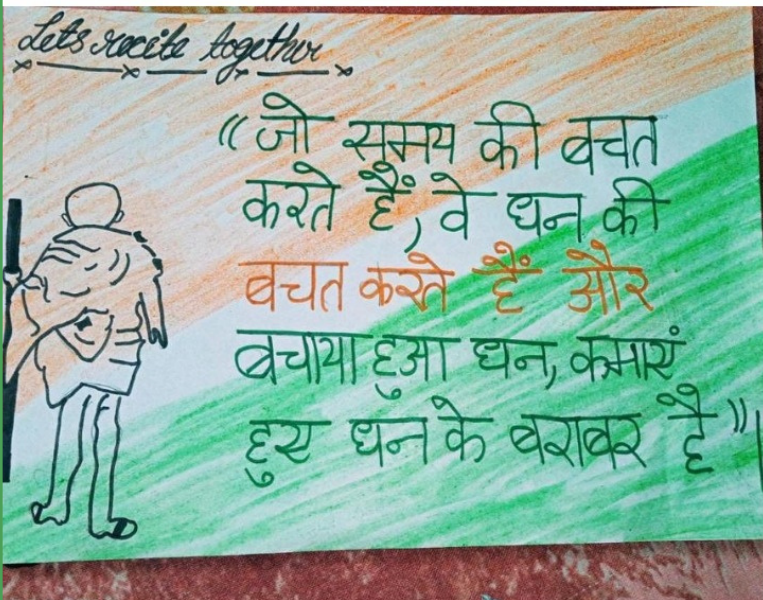 Lets recite together
“जो समय की बचत
करते हैं, वे धन की
बचत करते हैं और
बचाया हुआ धन, कमाएं
हुए धन के बराबर है”।